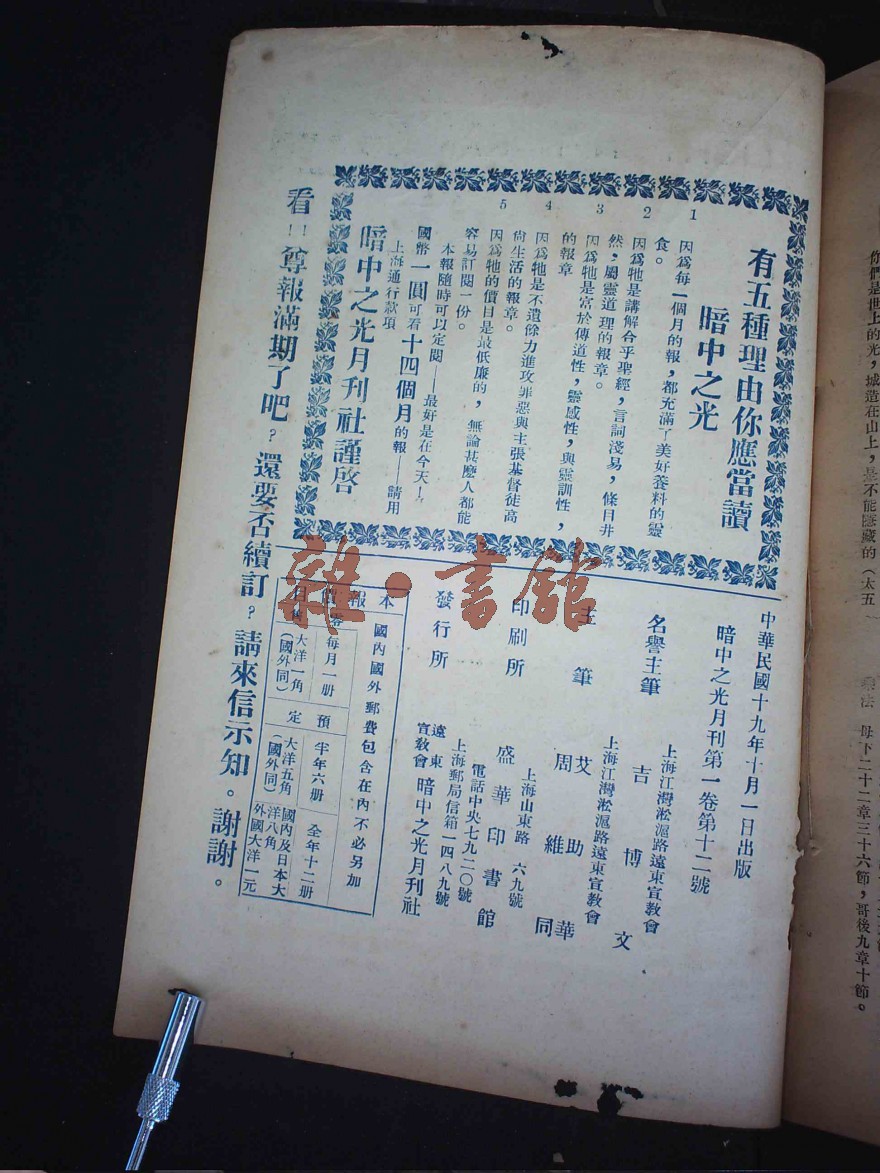 有五種理由你應當讀
暗中之光
1 因爲每一個月的報，都充滿了美好養料的靈
食。
2 因爲牠是講解合乎聖經，言詞淺易，條目井
然，屬靈道理的報章。
3 因爲牠是富於傳道性，靈感性，與靈訓性，
的報章
4 因爲牠是不遺餘力進攻罪惡與主張基督徒高
尙生活的報章。
5 因爲牠的價目是最低廉的，無論甚麼人都能
容易訂閱一份。
本報隨時可以定閱—最好是在今天—
國幣一圓可看十四個月的報—請用
上海通行款項
暗中之光月刊社謹啓
中華民國十九年十月一日出版
暗中之光月刊第一卷第十二號
上海江灣淞滬路遠東宣敎會
名譽主筆 吉博文
上海江灣淞滬路遠東宣敎會
主筆 艾助華
周維同
上海山東路 六九號
印刷所 盛華印書館
電話中央七九二〇號
上海郵局信箱一四八九號
發行所 遠東宣敎會 暗中之光月刊社
本報價目
國內國外郵費包含在內不必另加
零 每月一册 大洋一角（國外同）
預定 半年六册 大洋五角（國外同）
全年十二册 國內及日本大洋八角 外國大洋一元
看!!尊報滿期了吧？還要否續訂？請來信示知。謝謝。
雜·書館
你們是世上的光，城造在山上，是不能隱藏的（太五
母下二十二章三十六節，哥後九章十節。